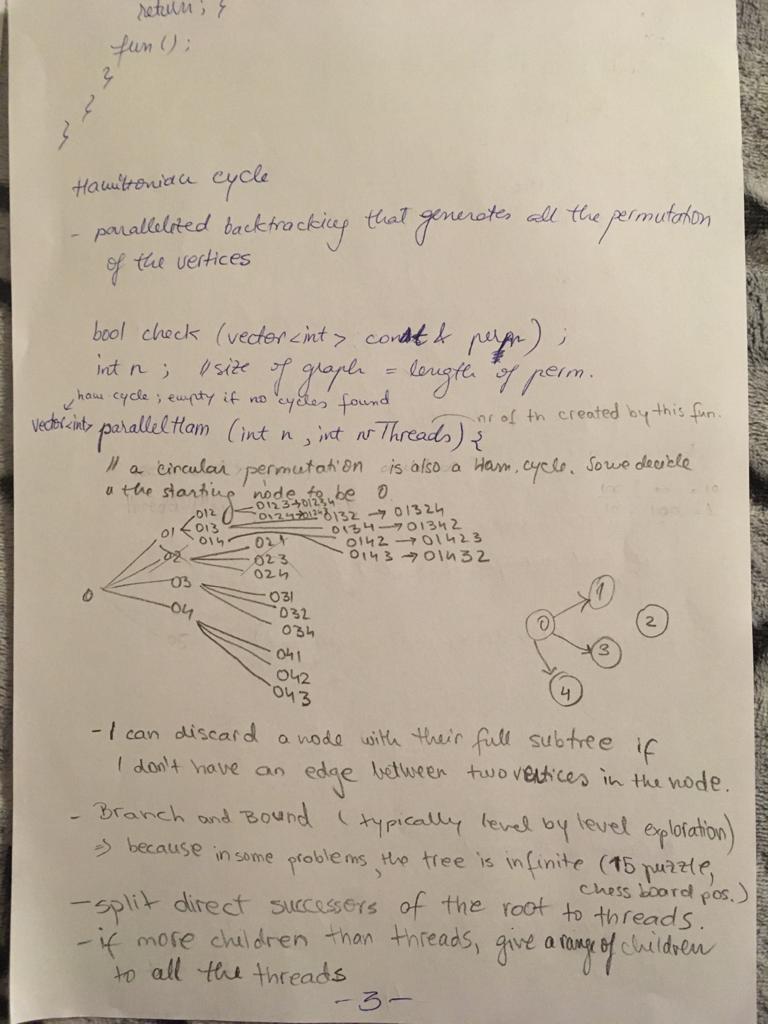 return; }
fun();
}
}
}
Hamiltonian cycle
- parallelized backtracking that generates all the permutation
of the vertices
bool check (vector<int> const & perm) ;
int n ; // size of graph = length of perm.
ham cycle ; empty if no cycles found
nr of th created by this fun.
vector<int> parallelHam (int n, int nrThreads) {
// a circular permutation is also a Ham. cycle. So we decide
// the starting node to be 0
012 0123→01234
01 013 0124→ 0132 → 01324
014 0134 → 01342
02 021 0142 → 01423
023 0143 → 01432
024
0 03 031
04 032
034
041
042
043
0 1 2 3 4
- I can discard a node with their full subtree if
I don't have an edge between two vertices in the node.
- Branch and Bound ( typically level by level exploration)
⇒ because in some problems, the tree is infinite (15 puzzle,
chess board pos.)
- split direct successors of the root to threads.
- if more children than threads, give a range of children
to all the threads
- 3 -